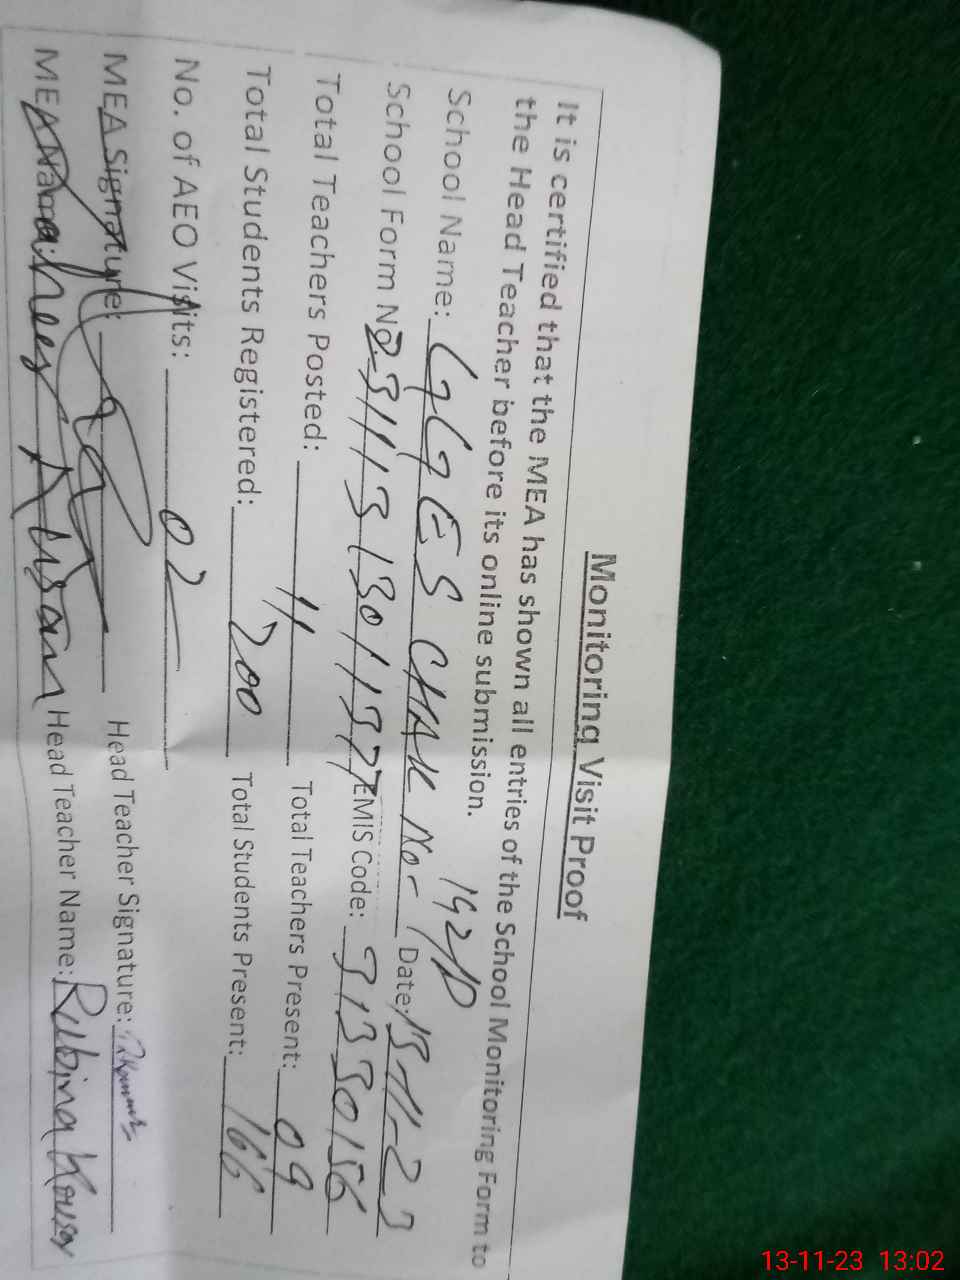 Monitoring Visit Proof
It is certified that the MEA has shown all entries of the School Monitoring Form to
the Head Teacher before its online submission.
School Name: GGES CHAK No- 192/D Date: 13-11-23
School Form No. EMIS Code: 31330156
Total Teachers Posted: 11 Total Teachers Present: 09
Total Students Registered: 200 Total Students Present: 166
No. of AEO Visits: 02
MEA Signature: Head Teacher Signature: RKousar
MEA Name: Ahsan Head Teacher Name: Rubina Kousar
13-11-23 13:02